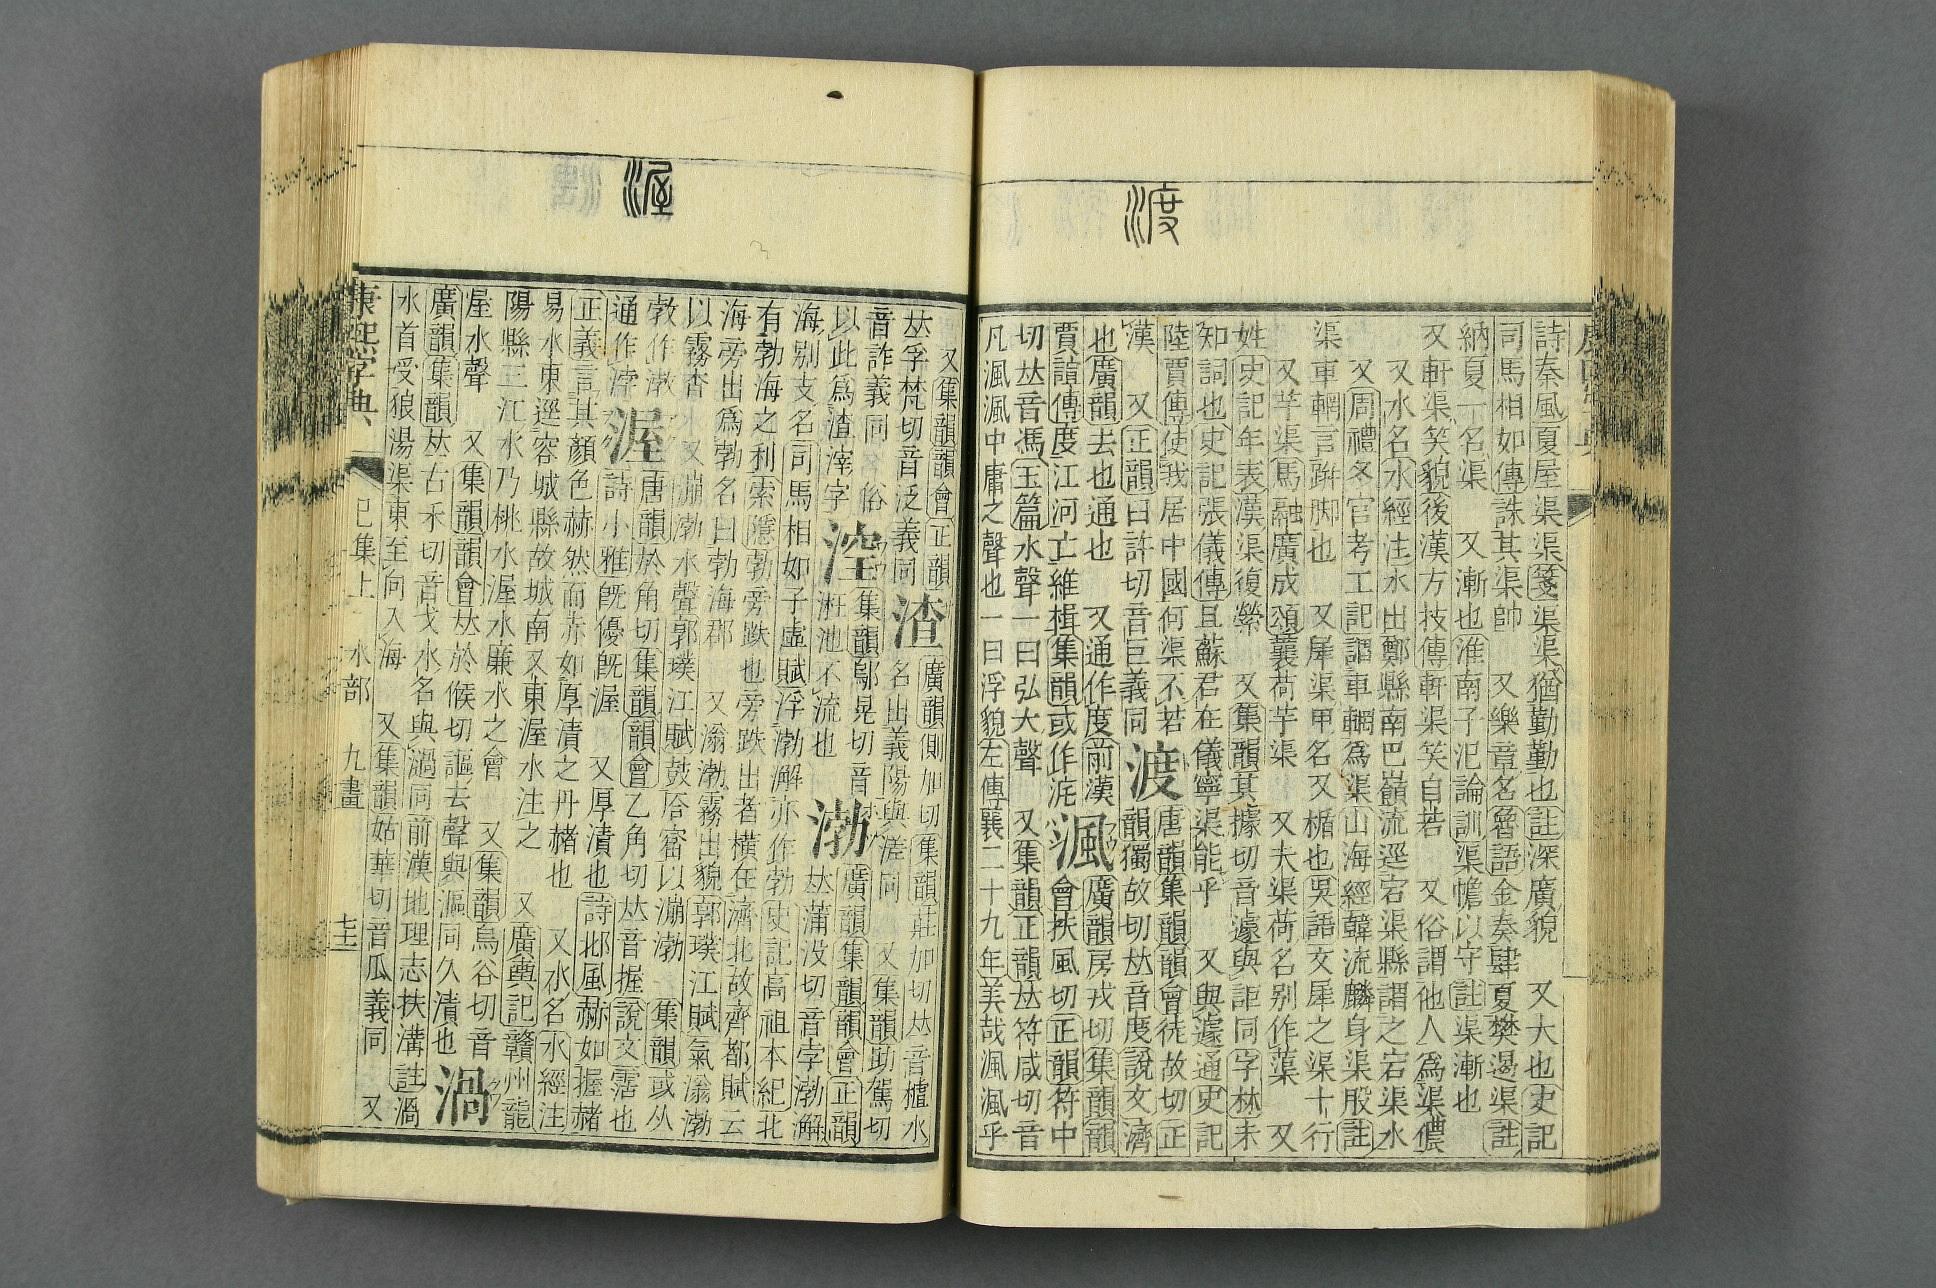 渡
詩秦風夏屋渠渠箋渠渠猶勤勤也註深廣貌 又大也史記
司馬相如傳誅其渠帥 又樂章名魯語金奏肆夏樊遏渠註
納夏一名渠 又漸也淮南子氾論訓渠幨以守註渠漸也
又軒渠笑貌後漢方技傳軒渠笑自若 又俗謂他人爲渠儂
又水名水經注水出鄭縣南巴嶺流逕宕渠縣謂之宕渠水
又周禮冬官考工記謂車輞爲渠山海經韓流麟身渠股註
渠車輞言跰脚也 又犀渠甲名又楯也吳語文犀之渠十行
又芋渠馬融廣成頌蘘荷芋渠 又夫渠荷名别作蕖 又
姓史記年表漢渠復絫 又集韻其據切音遽與詎同字林未
知詞也史記張儀傳且蘇君在儀寧渠能乎 又與遽通史記
陸賈傳使我居中國何渠不若
漢 又正韻臼許切音巨義同
渡
唐韻集韻韻會徒故切正
韻獨故切𠀤音度說文濟
也廣韻去也通也 又通作度前漢
賈誼傳度江河亡維楫集韻或作
渢
廣韻房戎切集韻韻
會扶風切正韻符中
切𠀤音馮玉篇水聲一曰弘大聲 又集韻正韻𠀤符咸切音
凡渢渢中庸之聲也一曰浮貌左傳襄二十九年美哉渢渢乎
渥
又集韻韻會正韻
𠀤孚梵切音泛義同
渣
廣韻側加切集韻莊加切𠀤音樝水
名出義陽與溠同 又集韻助駕切
音詐義同 俗
以此爲渣滓字
集韻鄔晃切音
池不流也
渤
廣韻集韻韻會正韻
𠀤蒲没切音孛渤澥
海别支名司馬相如子虛賦浮渤澥亦作勃史記高祖本紀北
有勃海之利索隱勃旁跌也旁跌出者橫在濟北故齊都賦云
海旁出爲勃名曰勃海郡 又滃渤霧出貌郭璞江賦氣滃渤
以霧杳 又漰渤水聲郭璞江賦鼓㕎窟以漰渤 集韻或从
通作浡
渥
唐韻於角切集韻韻會乙角切𠀤音握說文霑也
詩小雅旣優旣渥 又厚漬也詩邶風赫如握赭
正義言其顏色赫然而赤如厚漬之丹赭也 又水名水經注
易水東逕容城縣故城南又東渥水注之 又廣輿記贛州龍
陽縣三江水乃桃水渥水廉水之會 又集韻烏谷切音
屋水聲 又集韻韻會𠀤於候切謳去聲與漚同久漬也
渦
廣韻集韻𠀤古禾切音戈水名與濄同前漢地理志扶溝註濄
水首受狼湯渠東至向入海 又集韻姑華切音瓜義同 又
康熙字典
巳集上 水部 九畫
七十二